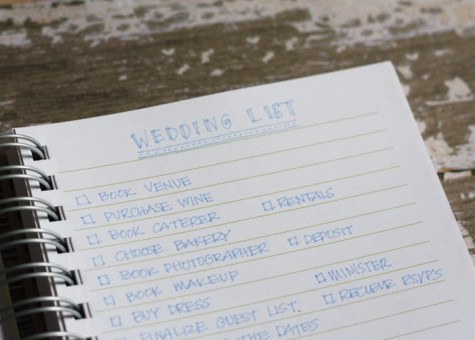 WEDDING LIST
BOOK VENUE
PURCHASE WINE
BOOK CATERER RENTALS
CHOOSE BAKERY
BOOK PHOTOGRAPHER DEPOSIT
BOOK MAKEUP
BUY DRESS MINISTER
FINALIZE GUEST LIST. RECIEVE RSVP'S
THE DATES